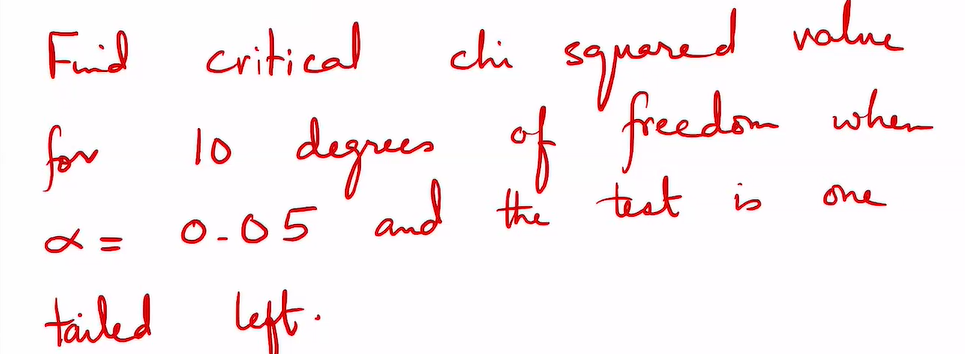 Find critical chi squared value
for 10 degrees of freedom when
α = 0.05 and the test is one
tailed left.